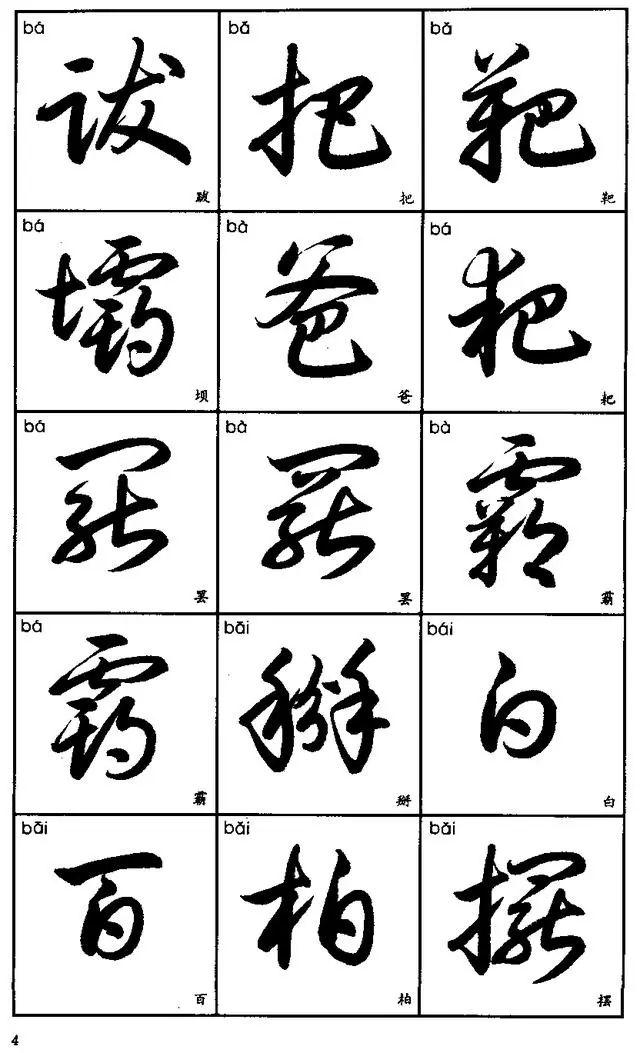 bá bǎ bǎ
跋 把 靶
跋 把 靶
bá bà bá
壩 爸 耙
坝 爸 耙
bá bà bà
罷 罷 霸
罢 罢 霸
bá bāi bái
霸 掰 白
霸 掰 白
bǎi bǎi bǎi
百 柏 擺
百 柏 摆
4